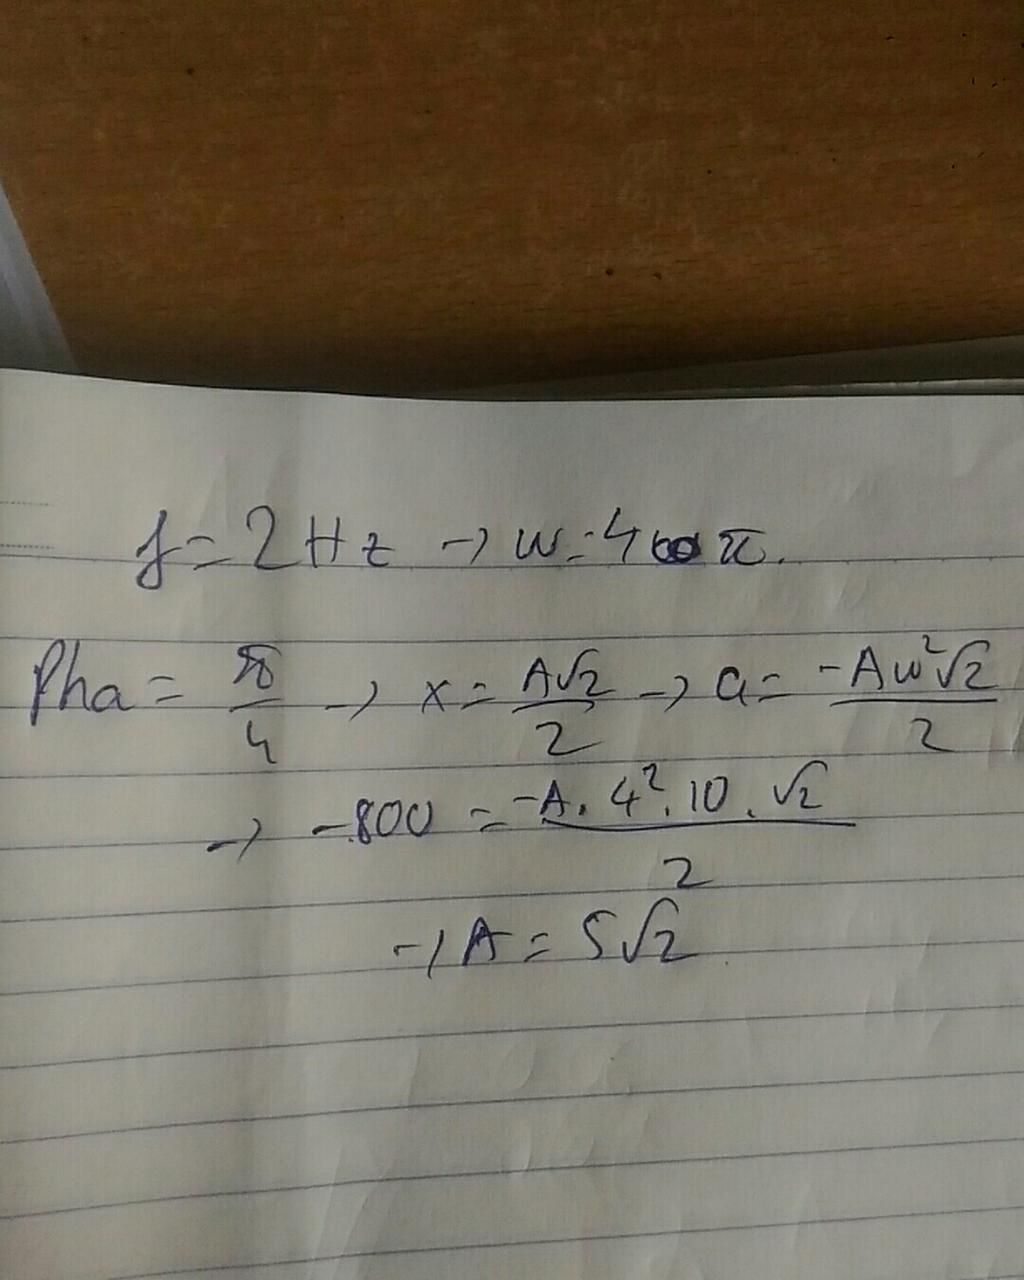 f = 2 Hz → w = 4 π.
Pha = π/4 → x = A√2/2 → a = -Aw²√2/2
→ -800 = -A.4².10.√2/2
→ A = 5√2